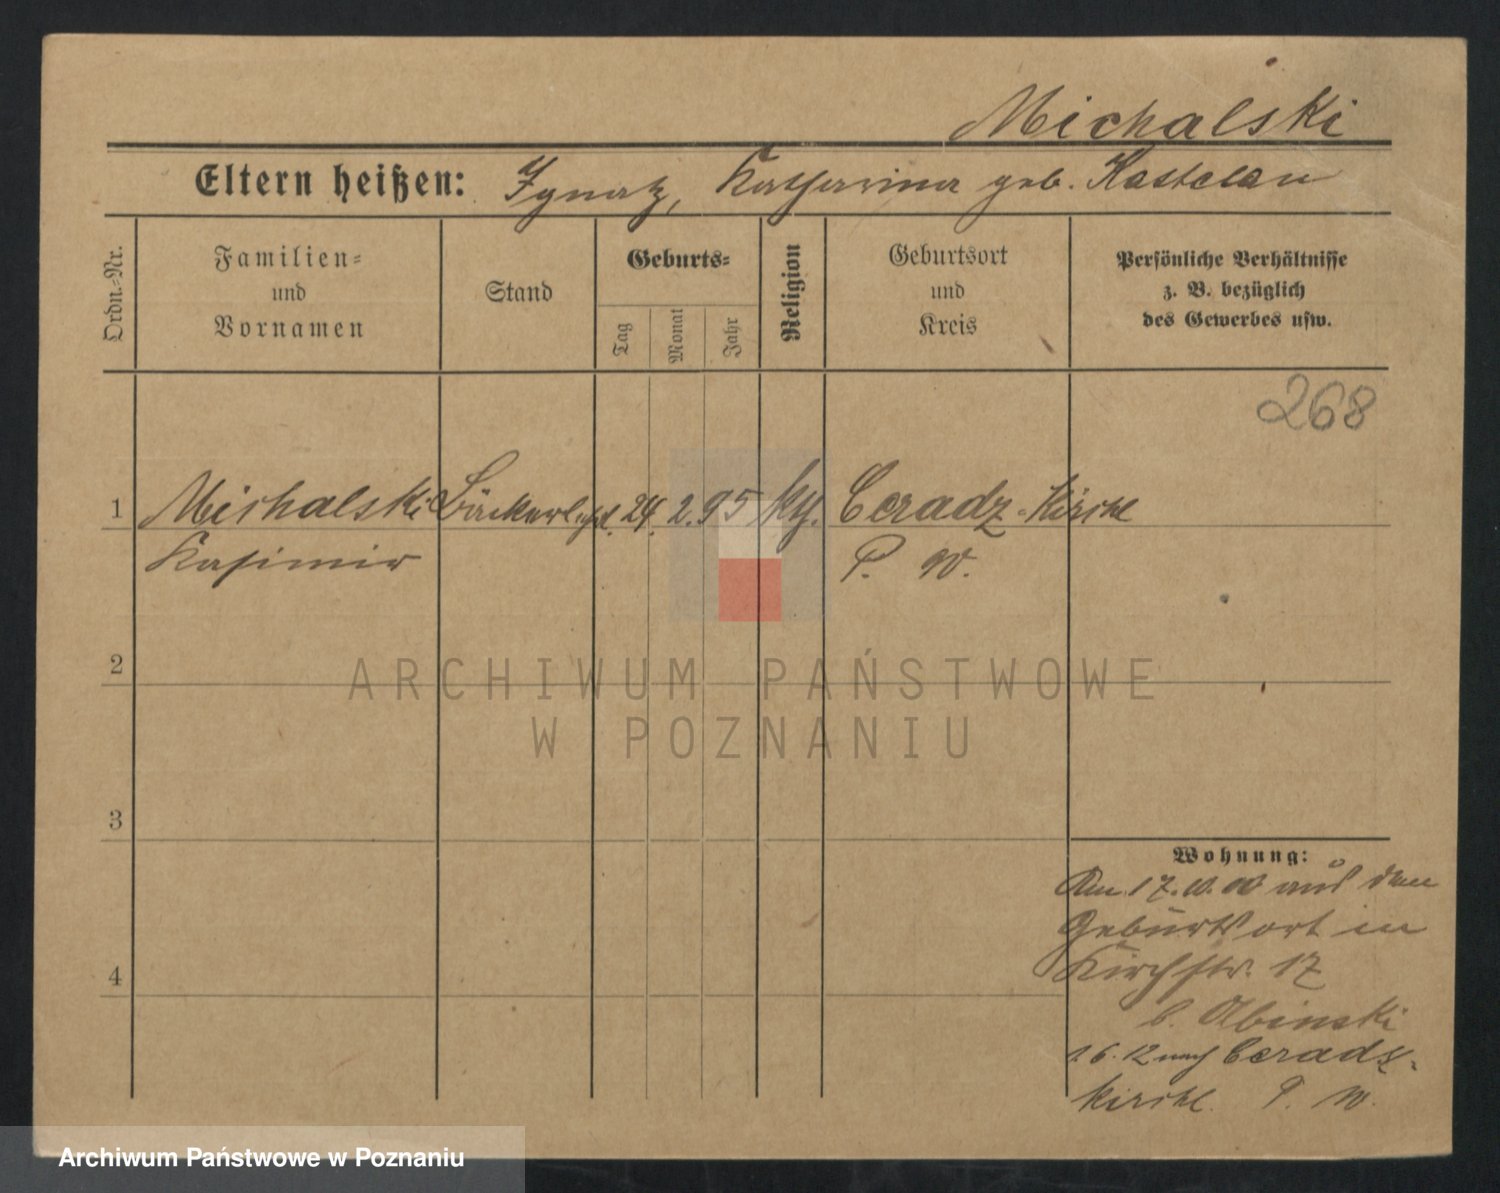 Michalski
Eltern heißen: Ignatz, Katharina geb. Kastelan
Ordn.-Nr.
Familien- und Vornamen
Stand
Geburts-
Tag
Monat
Jahr
Religion
Geburtsort und Kreis
Persönliche Verhältnisse
z. B. bezüglich
des Gewerbes usw.
268
1 Michalski Bäckerlehrl. 24. 2. 95 kth. Ceradz-Kirchl
Kasimir P. W.
ARCHIWUM PAŃSTWOWE
W POZNANIU
2
3
4
Wohnung:
Am 17. aus dem
Geburtsort in
Kirchstr. 17
b.
1.6.12 nach Ceradz-
kirchl. P. W.
Archiwum Państwowe w Poznaniu